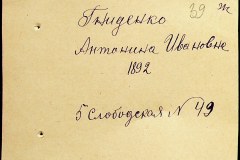 39 ж
Гниденко
Антонина Ивановне
1892
5 Слободская, N 49